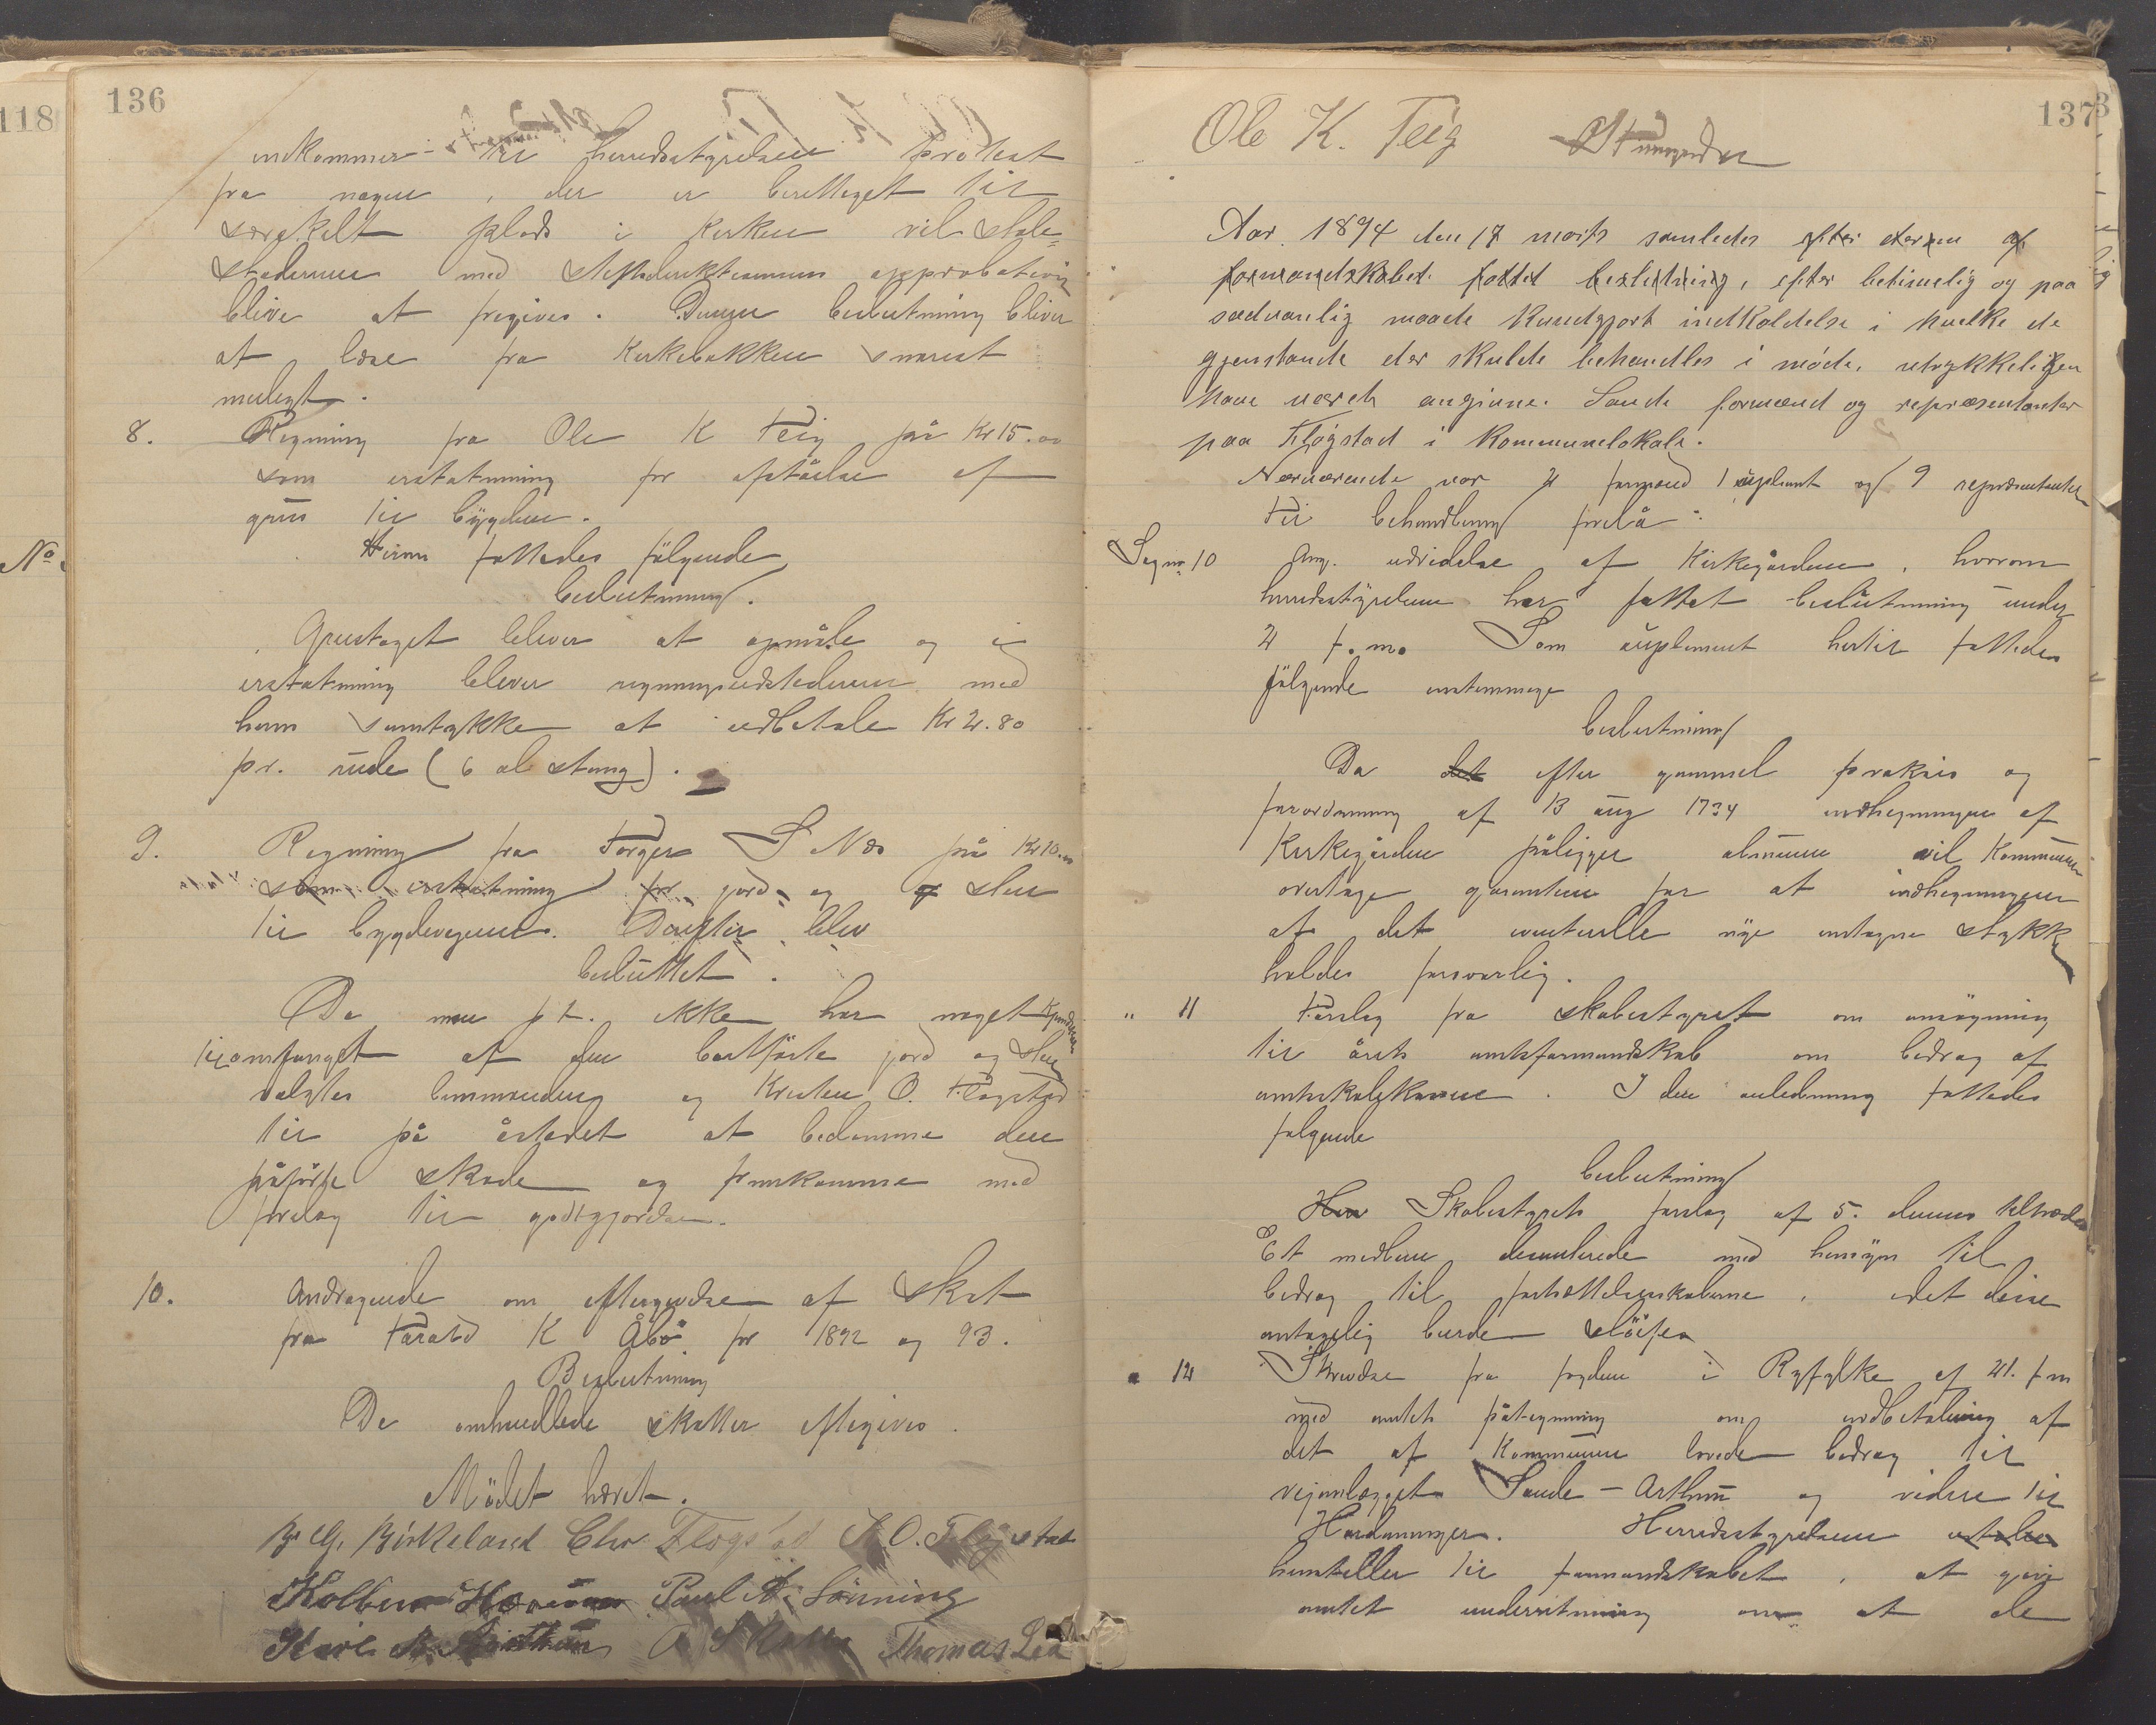 118
No
136
indkommer til herredsstyrelsen protest
fra nogen, der er berettiget til
særskelt plads i kirken vil stole-
staderne med stiftsdirektionens approbation
blive at frigives. Denne beslutning bliver
at læse fra Kirkebakken snarest
muligt.
8. Regning fra Ole K Teig på Kr 15.00
som erstatning for afståelse af
grus til bygdev.
Herom fattedes følgende
beslutning.
Grustaget bliver at opmåle og i
erstatning bliver regningsudstederen med
hans samtykke at udbetale Kr 2.80
pr. rude (6 al stang).
9. Regning fra Torger S Næs på Kr 10.00
som erstatning for jord og sten
til bygdevegene. Derefter blev
besluttet.
Da man p t. ikke har noget kjendskab
til omfanget af den bortførte jord og sten
valgtes lensmanden og Kristen O. Fløgstad
til på åstedet at bedømme den
påførte skade og fremkomme med
forslag til godtgjørelse.
10. Andragende om eftergivelse af Skat
fra Tarald K Åbø for 1892 og 93.
Beslutning
De omhandlede skatter eftergives.
Mödet hævet.
B. G. Birkeland Chr Fløgstad K. O. Fløgstad
Kolbein Havrem Paul A. Sönning
Karl A. Arthun Thomas Lea
137
Ole K. Teig
Aar 1894 den 17 marts samledes efter den af
formandskabet fattet beslutning, efter betimelig og paa
sædvanlig maade kundgjort indkaldelse i hvilke de
gjenstande der skulde behandles i møde, udtrykkeligen
have været angivne. Sande formænd og repræsentanter
paa Fløgstad i Kommunelokale.
Nærværende var 4 formænd 1 suplant og 9 repræsentanter
Til behandling forelå:
Sag no 10 Ang. udvidelse af Kirkegården, hvorom
herredsstyrelsen har fattet beslutning under
2 f.m. Som suplement hertil fattedes
følgende enstemmige
beslutning
Da det efter gammel praksis og
forordning af 13 aug 1734 indhegningen af
Kirkegården påligger almuen vil Kommunen
overtage garantien for at indhegningen
af det eventuelle nye indtagne stykke
holdes forsvarlig.
" 11 Forslag fra skolestyret om ansøgning
til årets amtsformandskab om bidrag af
amtsskolekassen. I den anledning fattedes
følgende
beslutning
Skolestyrets forslag af 5. dennes tiltrædes
Et medlem dissenterede med hensyn til
bidrag til fortsættelsesskolerne, idet disse
antagelig burde slöifes
" 12 Skrivelse fra fogden i Ryfylke af 21. f m
med amtets påtegning om indbetaling af
det af Kommunen lovede bidrag til
veianlægget Sande - Arthun og videre til
Hordaninger. Herredsstyrelsen
henstiller til formandskabet, at give
amtet underretning om at de